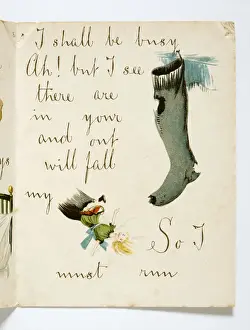 I shall be busy
Ah! but I see
there are
in your
and out
will fall
my
So I
must run